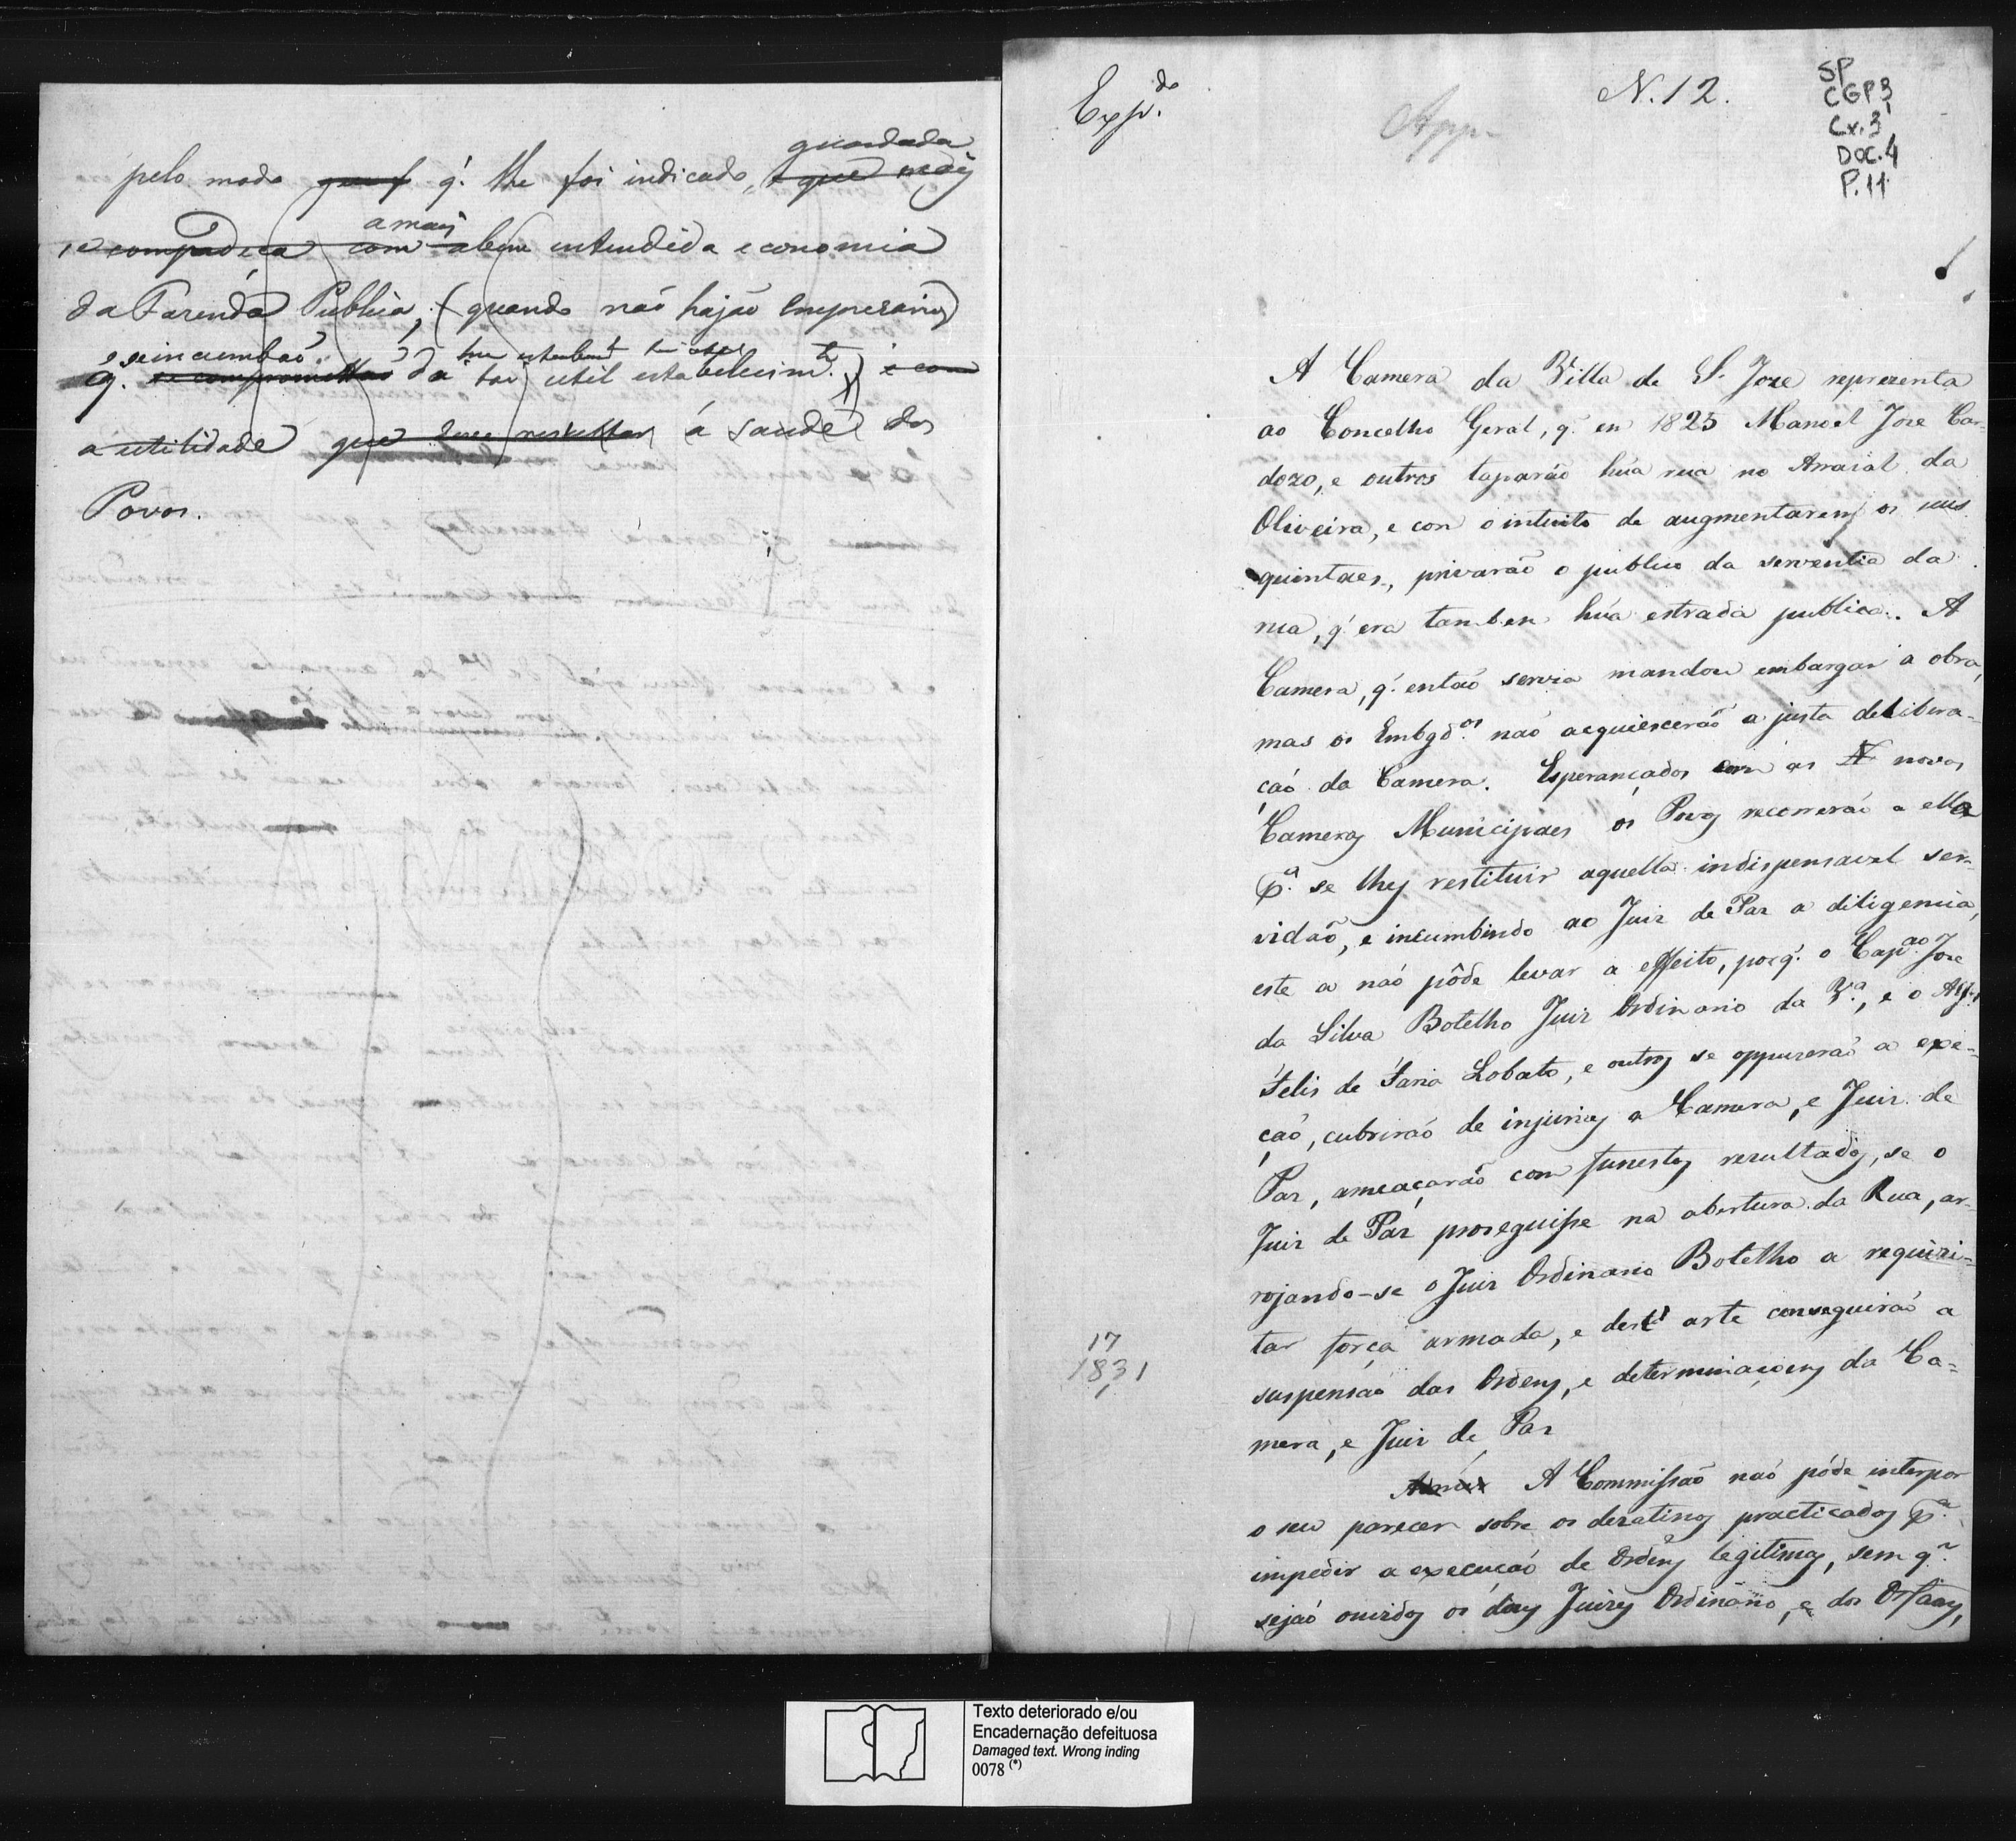 guardada
pelo modo q.' lhe foi indicado, que mais
a mais
se compadeça com abem entendida economia
da Fazenda Publica, (quando naõ hajaõ Emprezarios
se incumbaõ
q.' se compromettaõ da tai util estabelecim.to) e com
a utilidade que deve resultar á saude dos
Povos.
Exp.do
App.
N. 12.
SP
CGP3,
Cx.3,
DOC.4
P.11
A Camera da Villa de S. Joze reprezenta
ao Concelho Geral, q.' em 1825 Manoel Joze Car-
dozo, e outros taparaõ hũa rua no Arraial da
Oliveira, e com o intuito de augmentarem os seus
quintaes, privaraõ o publico da serventia da
rua, q.' era tambem hũa estrada publica. A
Camera, q.' entaõ servia mandou embargar a obra,
mas os Embgd.os naõ acquiesceraõ a justa delibera-
çaõ da Camera. Esperançados com as novas
Cameras Municipaes os Povos recorreraõ a ella
p.a se lhes restituir aquella indispensavel ser-
vidaõ, e incumbindo ao Juiz de Paz a diligencia,
este a naõ pôde levar a effeito, porq.' o Cap.ao Joze
da Silva Botelho Juiz Ordinario da V.a, e o Alf.s
Felis de Faria Lobato, e outros se oppuzeraõ a exe-
çaõ, cubriraõ de injurias a Camera, e Juiz de
Paz, ameaçaraõ com funestos rezultados, se o
Juiz de Paz proseguisse na abertura da Rua, ar-
rojando-se o Juiz Ordinario Botelho a requizi-
tar força armada, e dest' arte conseguiraõ a
suspensaõ das Ordens, e determinaçoens da Ca-
mera, e Juiz de Paz
17
1831
A Commissaõ naõ póde interpor
o seu parecer sobre os dezatinos practicados p.a
impedir a execuçaõ de Ordens legitimas, sem q.'
sejaõ ouvidos os dous Juizes Ordinario, e dos Orfaons,
Texto deteriorado e/ou
Encadernação defeituosa
Damaged text. Wrong inding
0078 (*)